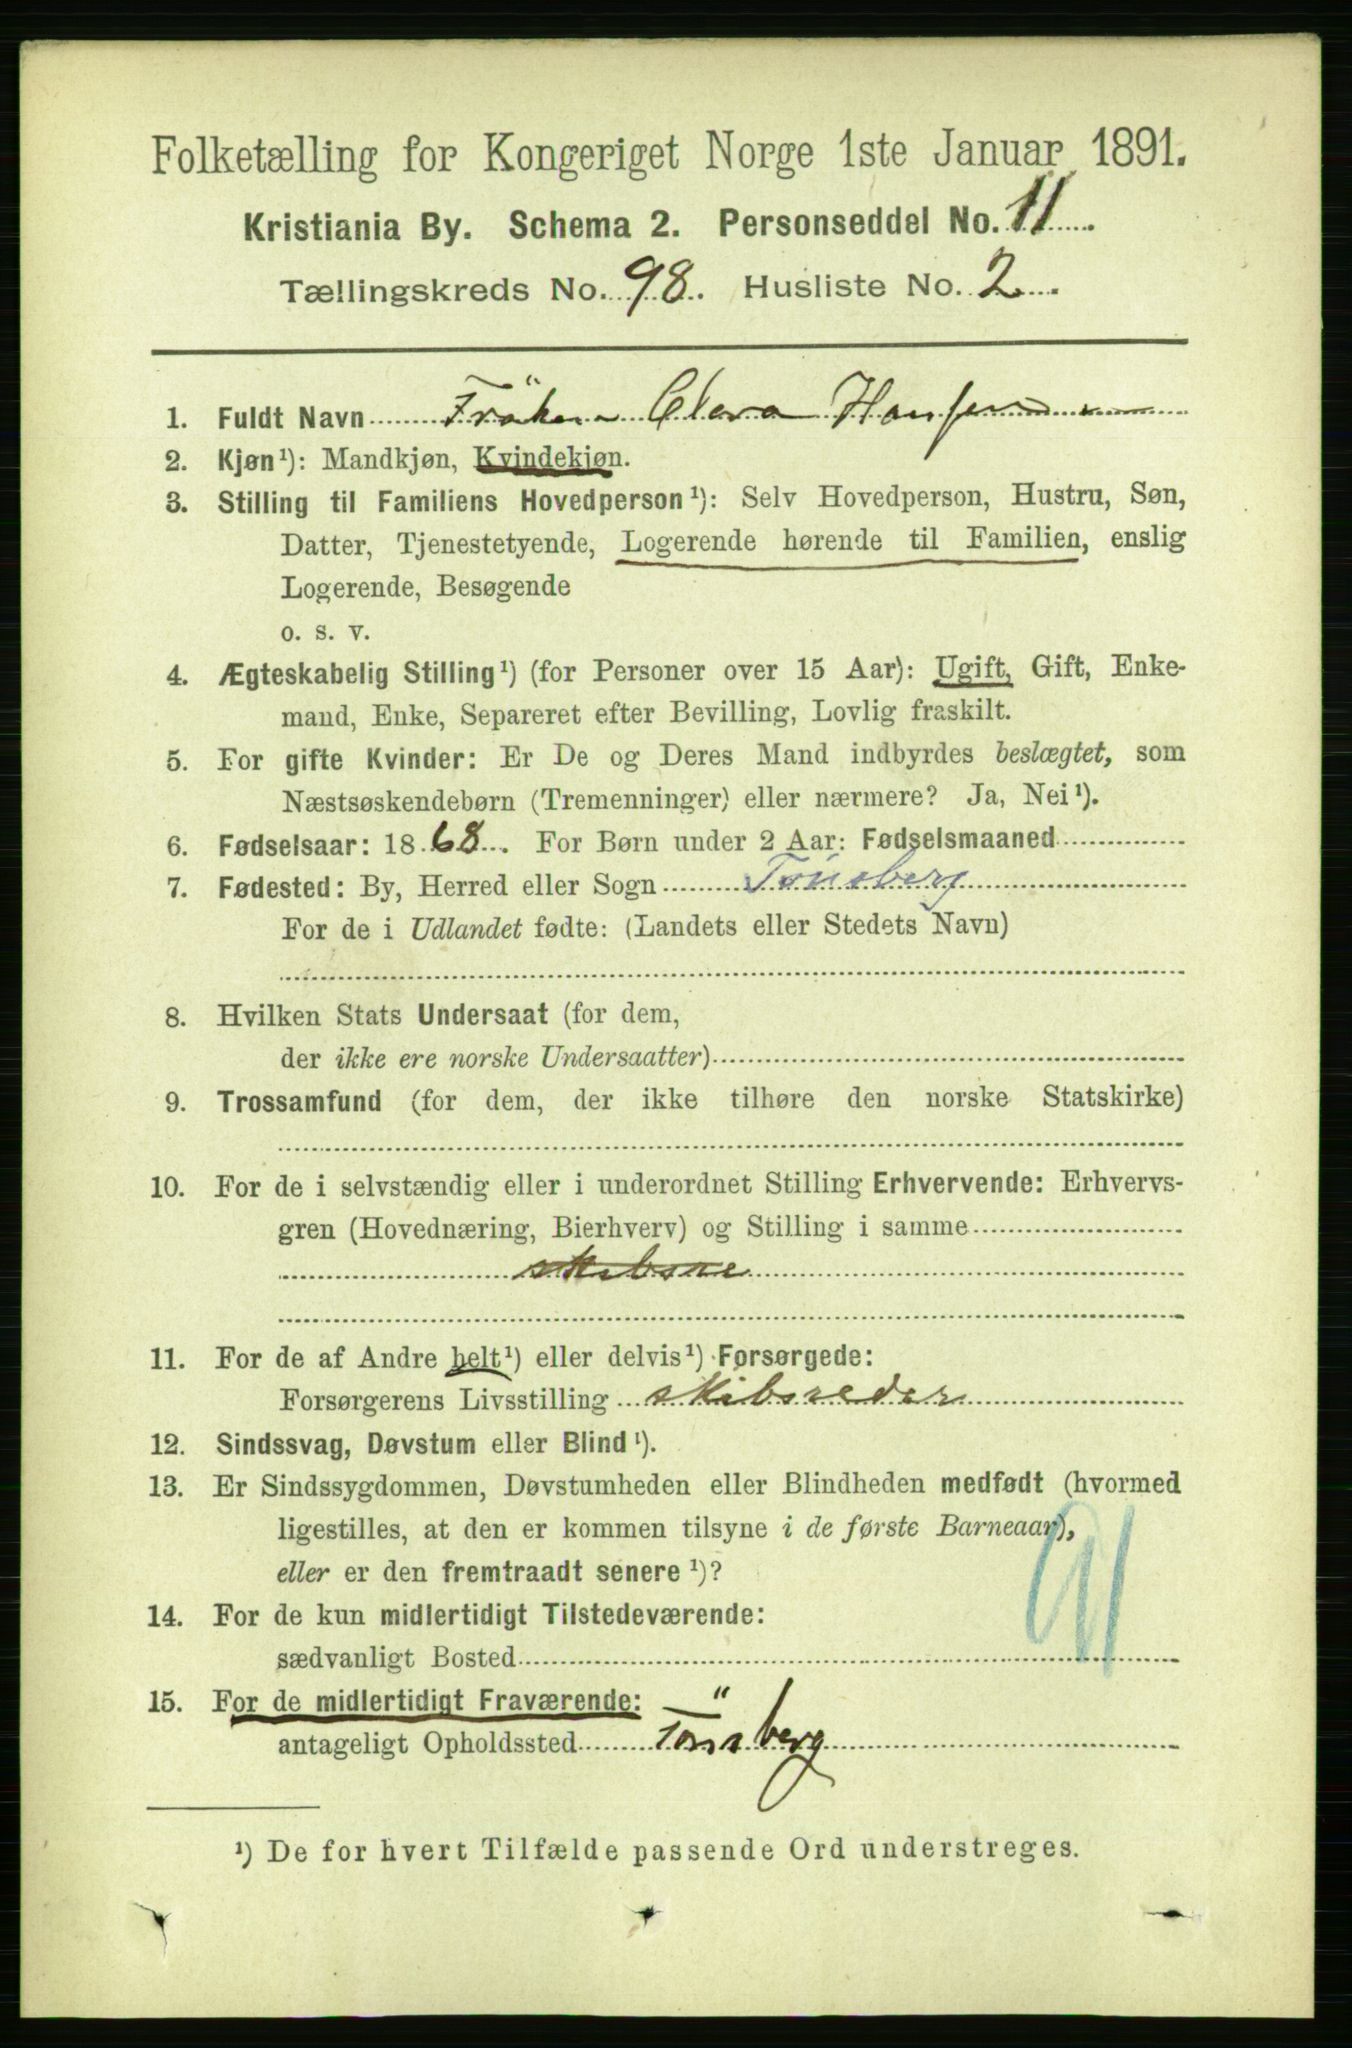 Folketælling for Kongeriget Norge 1ste Januar 1891.
Kristiania By. Schema 2. Personseddel No. 11
Tællingskreds No. 98. Husliste No. 2.
1. Fuldt Navn Fröken Clara Hansen
2. Kjøn¹): Mandkjøn, Kvindekjøn.
3. Stilling til Familiens Hovedperson¹): Selv Hovedperson, Hustru, Søn,
Datter, Tjenestetyende, Logerende hørende til Familien, enslig
Logerende, Besøgende
o. s. v.
4. Ægteskabelig Stilling¹) (for Personer over 15 Aar): Ugift, Gift, Enke-
mand, Enke, Separeret efter Bevilling, Lovlig fraskilt.
5. For gifte Kvinder: Er De og Deres Mand indbyrdes beslægtet, som
Næstsøskendebørn (Tremenninger) eller nærmere? Ja, Nei¹).
6. Fødselsaar: 1868. For Børn under 2 Aar: Fødselsmaaned
7. Fødested: By, Herred eller Sogn Tönsberg
For de i Udlandet fødte: (Landets eller Stedets Navn)
8. Hvilken Stats Undersaat (for dem,
der ikke ere norske Undersaatter)
9. Trossamfund (for dem, der ikke tilhøre den norske Statskirke)
10. For de i selvstændig eller i underordnet Stilling Erhvervende: Erhvervs-
gren (Hovednæring, Bierhverv) og Stilling i samme
skibsre
11. For de af Andre helt¹) eller delvis¹) Forsørgede:
Forsørgerens Livsstilling skibsreder
12. Sindssvag, Døvstum eller Blind¹).
13. Er Sindssygdommen, Døvstumheden eller Blindheden medfødt (hvormed
ligestilles, at den er kommen tilsyne i de første Barneaar),
eller er den fremtraadt senere¹)?
91
14. For de kun midlertidigt Tilstedeværende:
sædvanligt Bosted
15. For de midlertidigt Fraværende:
antageligt Opholdssted Tönsberg
¹) De for hvert Tilfælde passende Ord understreges.